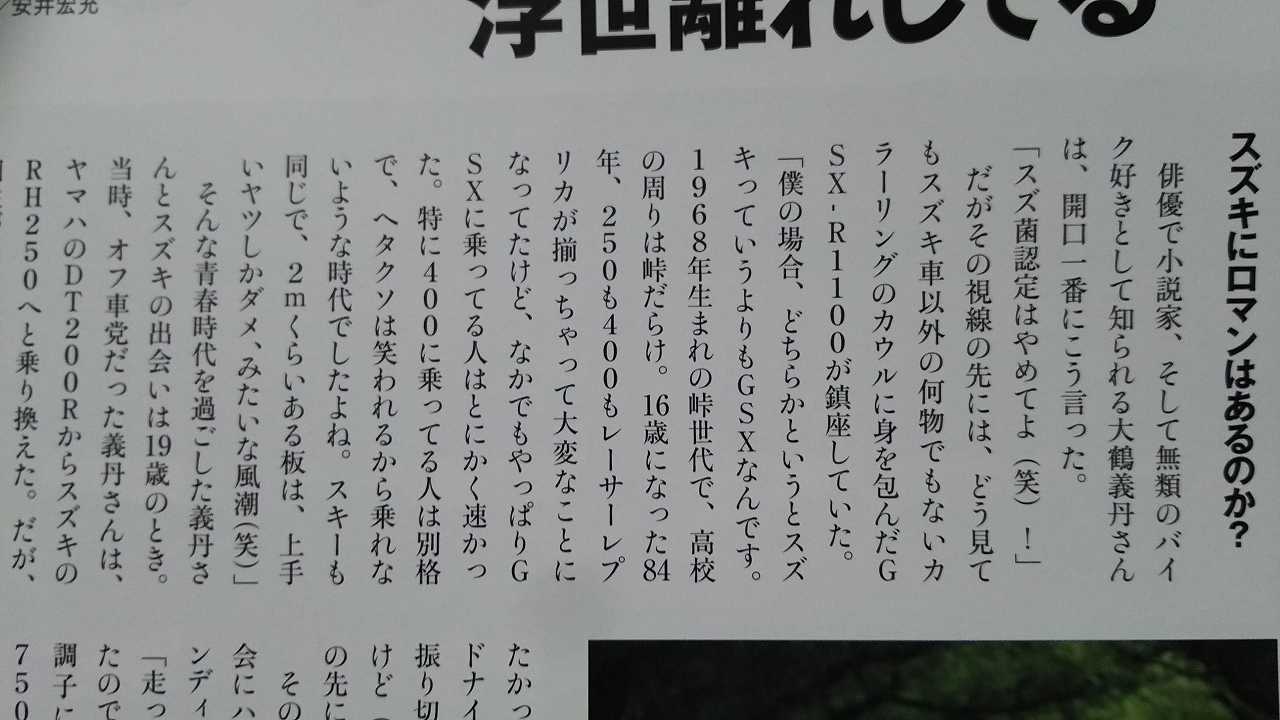 ／安井宏允
浮世離れしてる
スズキにロマンはあるのか？
俳優で小説家、そして無類のバイ
ク好きとして知られる大鶴義丹さん
は、開口一番にこう言った。
「スズ菌認定はやめてよ（笑）！」
だがその視線の先には、どう見て
もスズキ車以外の何物でもないカ
ラーリングのカウルに身を包んだG
SX-R1100が鎮座していた。
「僕の場合、どちらかというとスズ
キっていうよりもGSXなんです。
1968年生まれの峠世代で、高校
の周りは峠だらけ。16歳になった84
年、250も400もレーサーレプ
リカが揃っちゃって大変なことに
なってたけど、なかでもやっぱりG
SXに乗ってる人はとにかく速かっ
た。特に400に乗ってる人は別格
で、ヘタクソは笑われるから乗れな
いような時代でしたよね。スキーも
同じで、2mくらいある板は、上手
いヤツしかダメ、みたいな風潮（笑）」
そんな青春時代を過ごした義丹さ
んとスズキの出会いは19歳のとき。
当時、オフ車党だった義丹さんは、
ヤマハのDT200Rからスズキの
RH250へと乗り換えた。だが、
たかっ
ドナイ
振り切
けど（
の先に
その
会にハ
ンディ
「走っ
たので
調子に
750